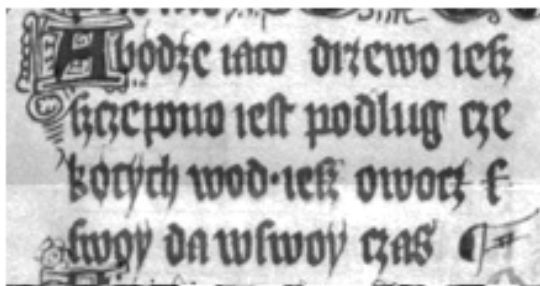 Abødze iaco drzewo ieſz
ſzczepono ieſt podlug cze
køcych wod·ieſz owocz ſ
ſwoy da wſwoy czas ¶